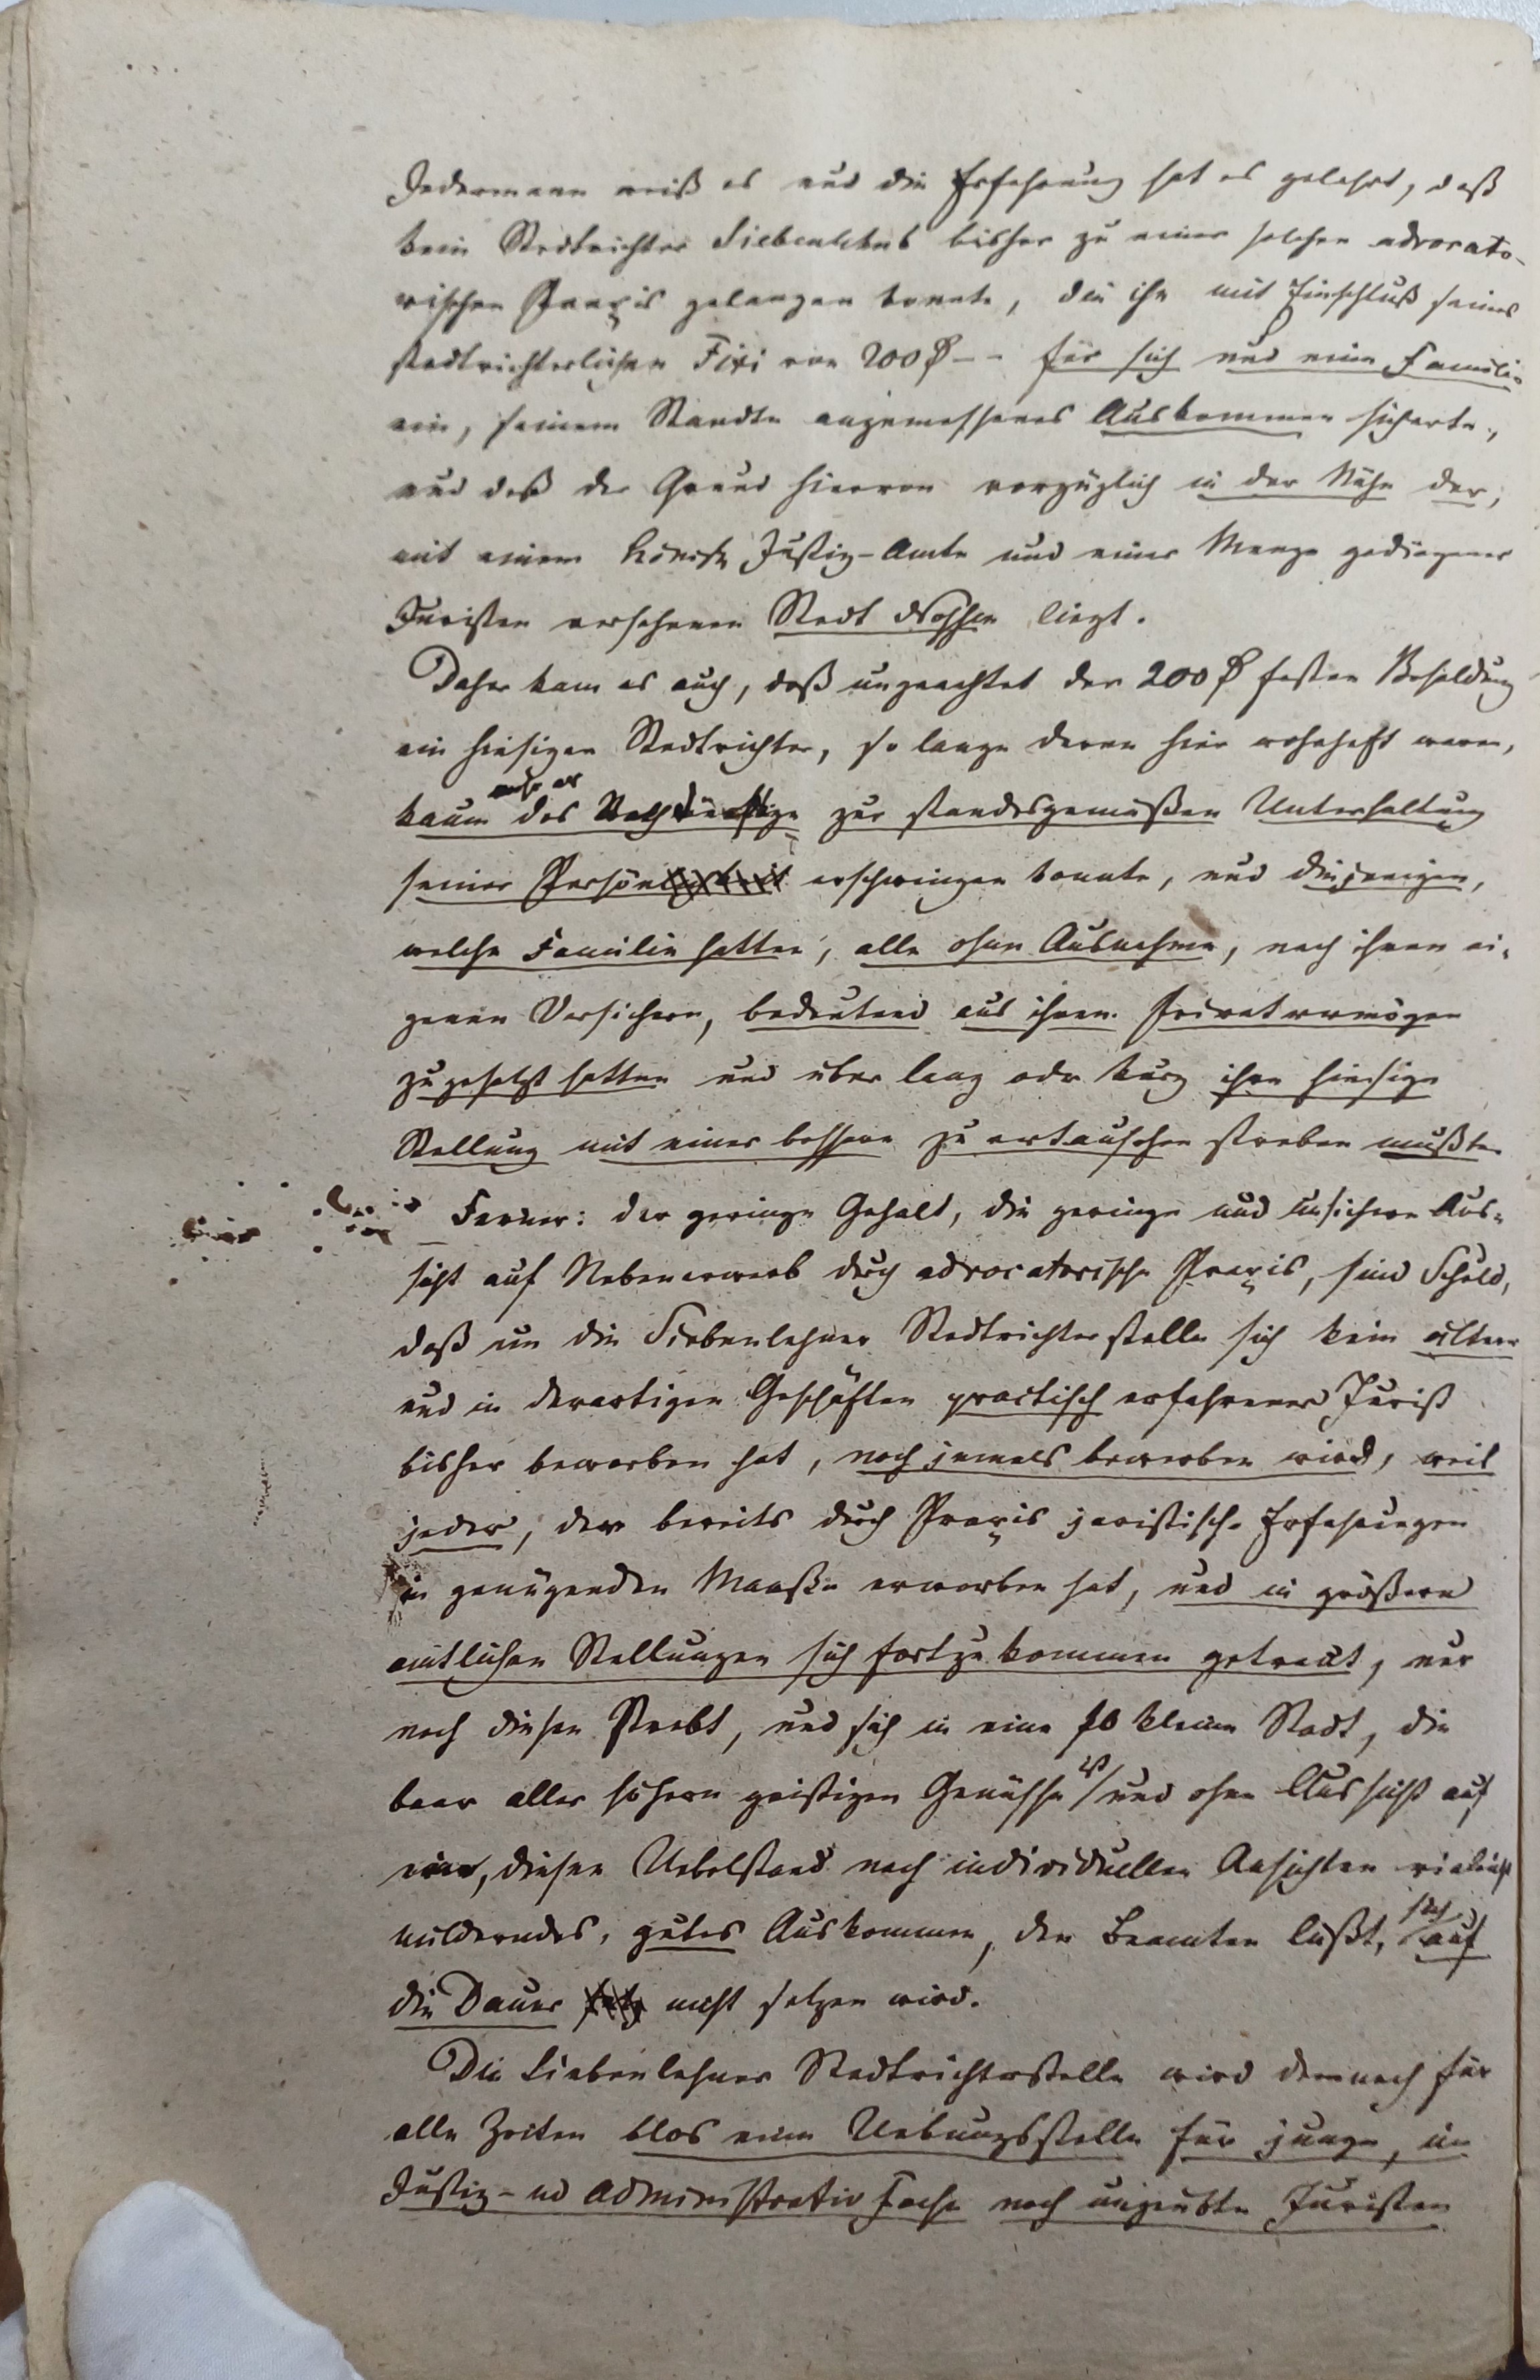 Jedermann weiß es und die Erfahrung hat es gelehrt, daß
kein Stadtrichter Siebenlehns bisher zu einer solchen advocato-
rischen Praxis gelangen konnte, die ihn mit Einschluß seines
stadtrichterlichen Fixi von 200 ₰ -- für sich und eine Familie
ein, seinem Stande angemessenes Auskommen sicherte,
und daß der Grund hiervon vorzüglich in der Nähe der,
mit einem Königl. Justiz-Amte und einer Menge gediegener
Juristen versehenen Stadt Nossen liegt.
Daher kam es auch, daß ungeachtet der 200 ₰ festen Besoldung
ein hiesiger Stadtrichter, so lange deren hier wohnhaft waren,
kaum das Nothdürftige zur standesgemäßen Unterhaltung
seiner Person erschwingen konnte, und diejenigen,
welche Familie hatten, alle ohne Ausnahme, nach ihren ei-
genen Versichern, bedeutend aus ihren Privatvermögen
zugesetzt hatten und über lang oder kurz ihre hiesige
Stellung mit einer bessern zu vertauschen streben mußten
Ferner: der geringe Gehalt, die geringe und unsichere Aus-
sicht auf Nebenerwerb durch advocatorische Praxis, sind Schuld,
daß um die Siebenlehner Stadtrichterstelle sich kein älterer
und in derartigen Geschäften practisch erfahrener Jurist
bisher beworben hat, noch jemals bewerben wird, weil
jeder, der bereits durch Praxis juristische Erfahrungen
in genügenden Maaße erworben hat, und in größern
amtlichen Stellungen sich fortzukommen getraut, nur
nach diesen strebt, und sich in eine so kleine Stadt, die
baar aller höhern geistigen Genüsse ist und ohne Aussicht auf
ein, diesen Uebelstand nach individuellen Ansichten vielleicht
milderndes, gutes Auskommen, den Beamten läßt, sich auf
die Dauer nicht setzen wird.
Die Siebenlehner Stadtrichterstelle wird demnach für
alle Zeiten blos eine Uebungsstelle für junge, im
Justiz- und Administrativ Fache noch ungeübte Juristen